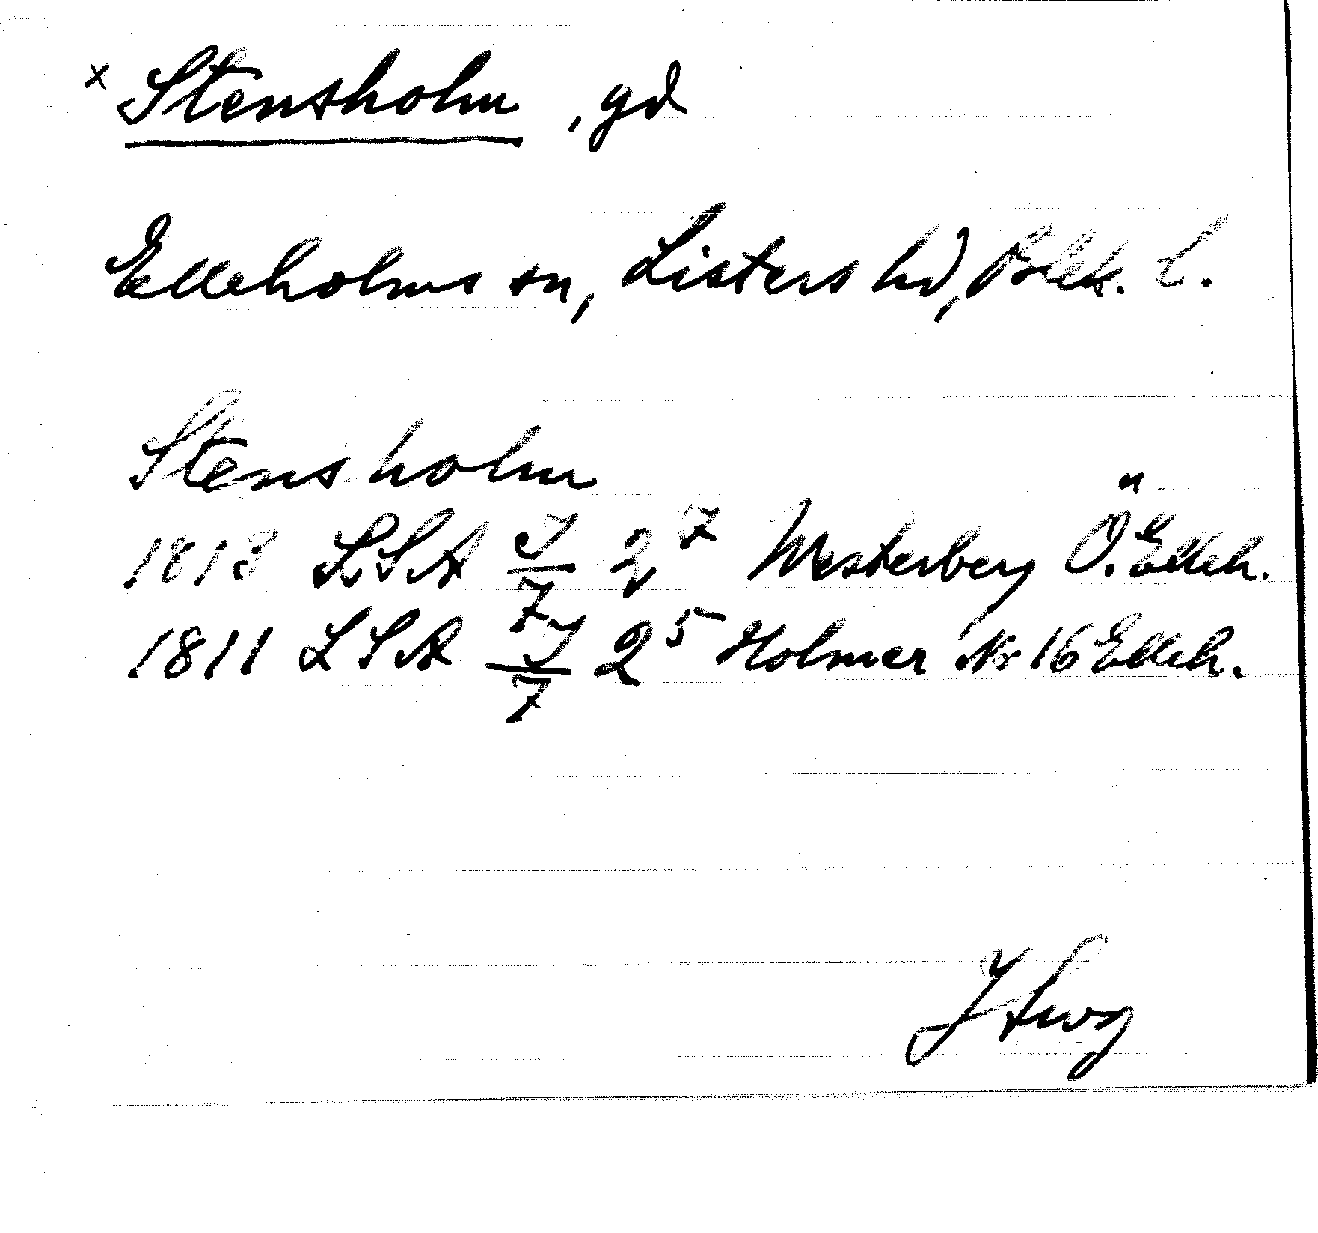 x Stensholm , gd
Elleholms sn, Listers hd, Blek. l.
Stensholm
1813 LSA J/7 2⁷ Westerberg Ö. Elleh.
1811 LSA J/7 2⁵ Holmer Nr 16 Elleh.